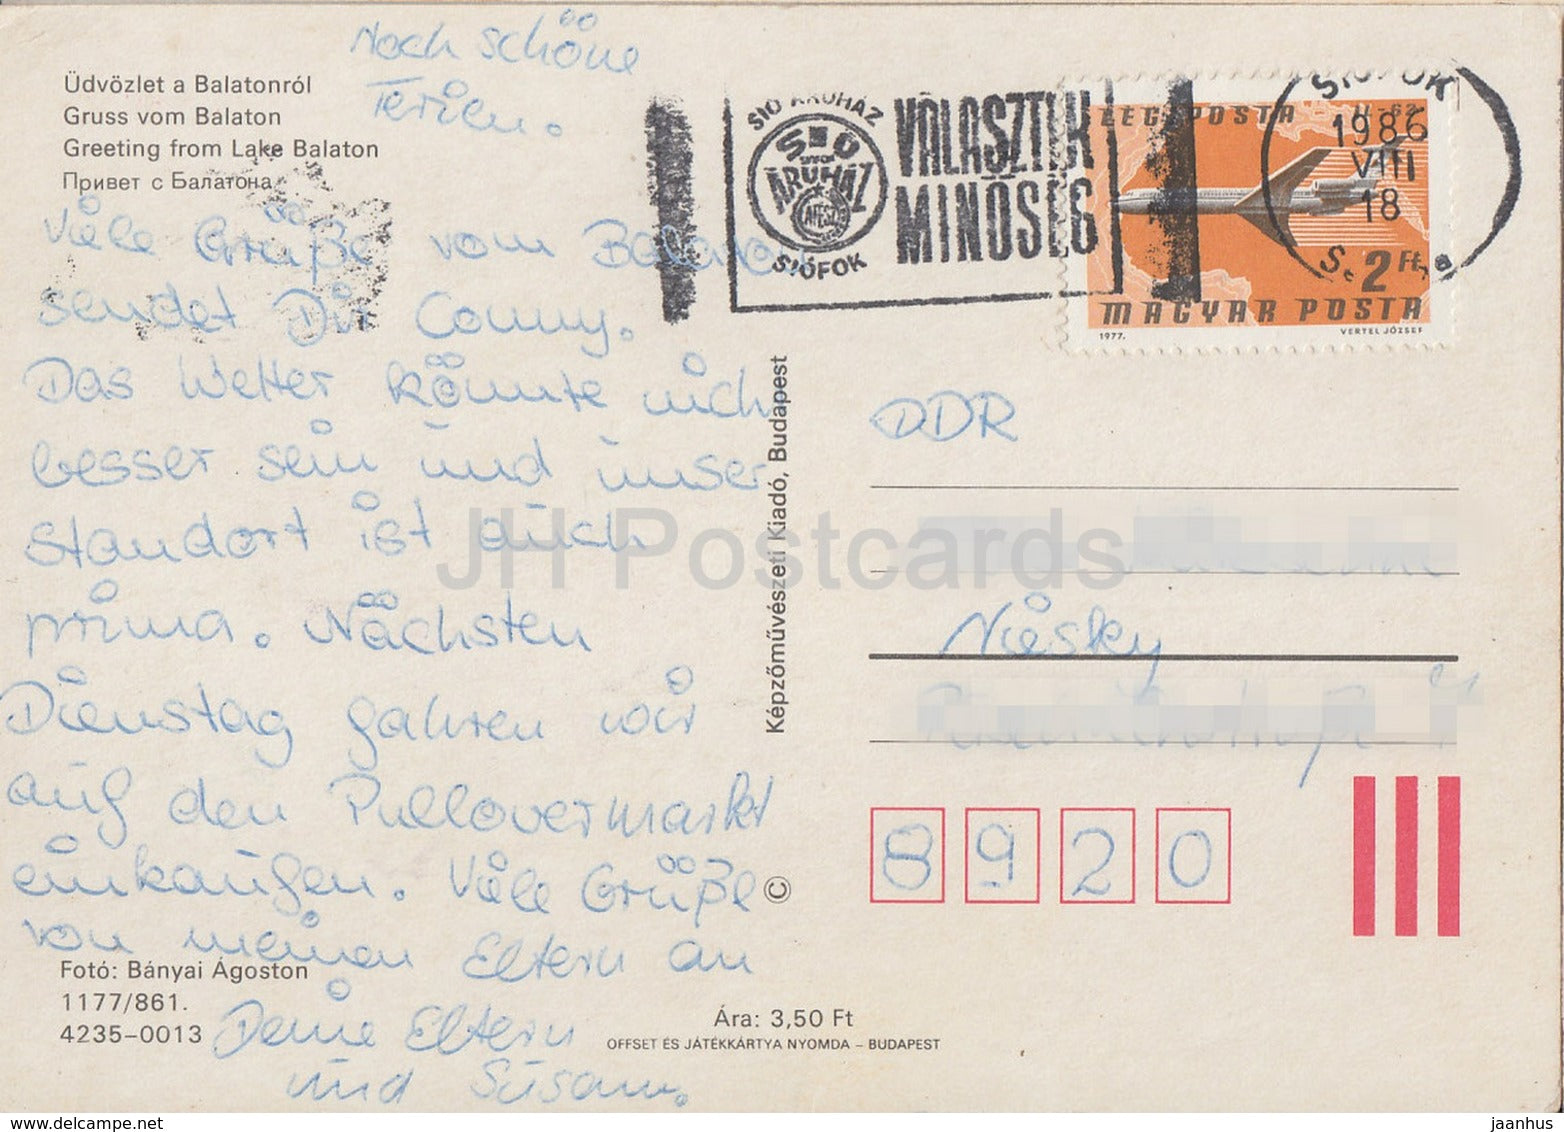 Noch schöne
Ferien.
Üdvözlet a Balatonról
Gruss vom Balaton
Greeting from Lake Balaton
Привет с Балатона
Viele Grüße vom Balaton
sendet Dir Conny.
Das Wetter könnte nich
besser sein und unser
Standort ist auch
prima. Nächsten
Dienstag fahren wir
auf den Pullovermarkt
einkaufen. Viele Grüße
von meinen Eltern an
Deine Eltern
und Susann.
Fotó: Bányai Ágoston
1177/861.
4235-0013
Ára: 3,50 Ft
OFFSET ÉS JÁTÉKKÁRTYA NYOMDA – BUDAPEST
Képzőművészeti Kiadó, Budapest
©
SIÓ ÁRUHÁZ
SIÓ
ÁRUHÁZ
ÁFÉSZ
SIÓFOK
VÁLASZTÉK
MINŐSÉG
LÉGIPOSTA IL-62
2 Ft
MAGYAR POSTA
1977. VERTEL JÓZSEF
SIÓFOK
1986
VIII
18
DDR
Niesky
8920
JH Postcards
jaanhus